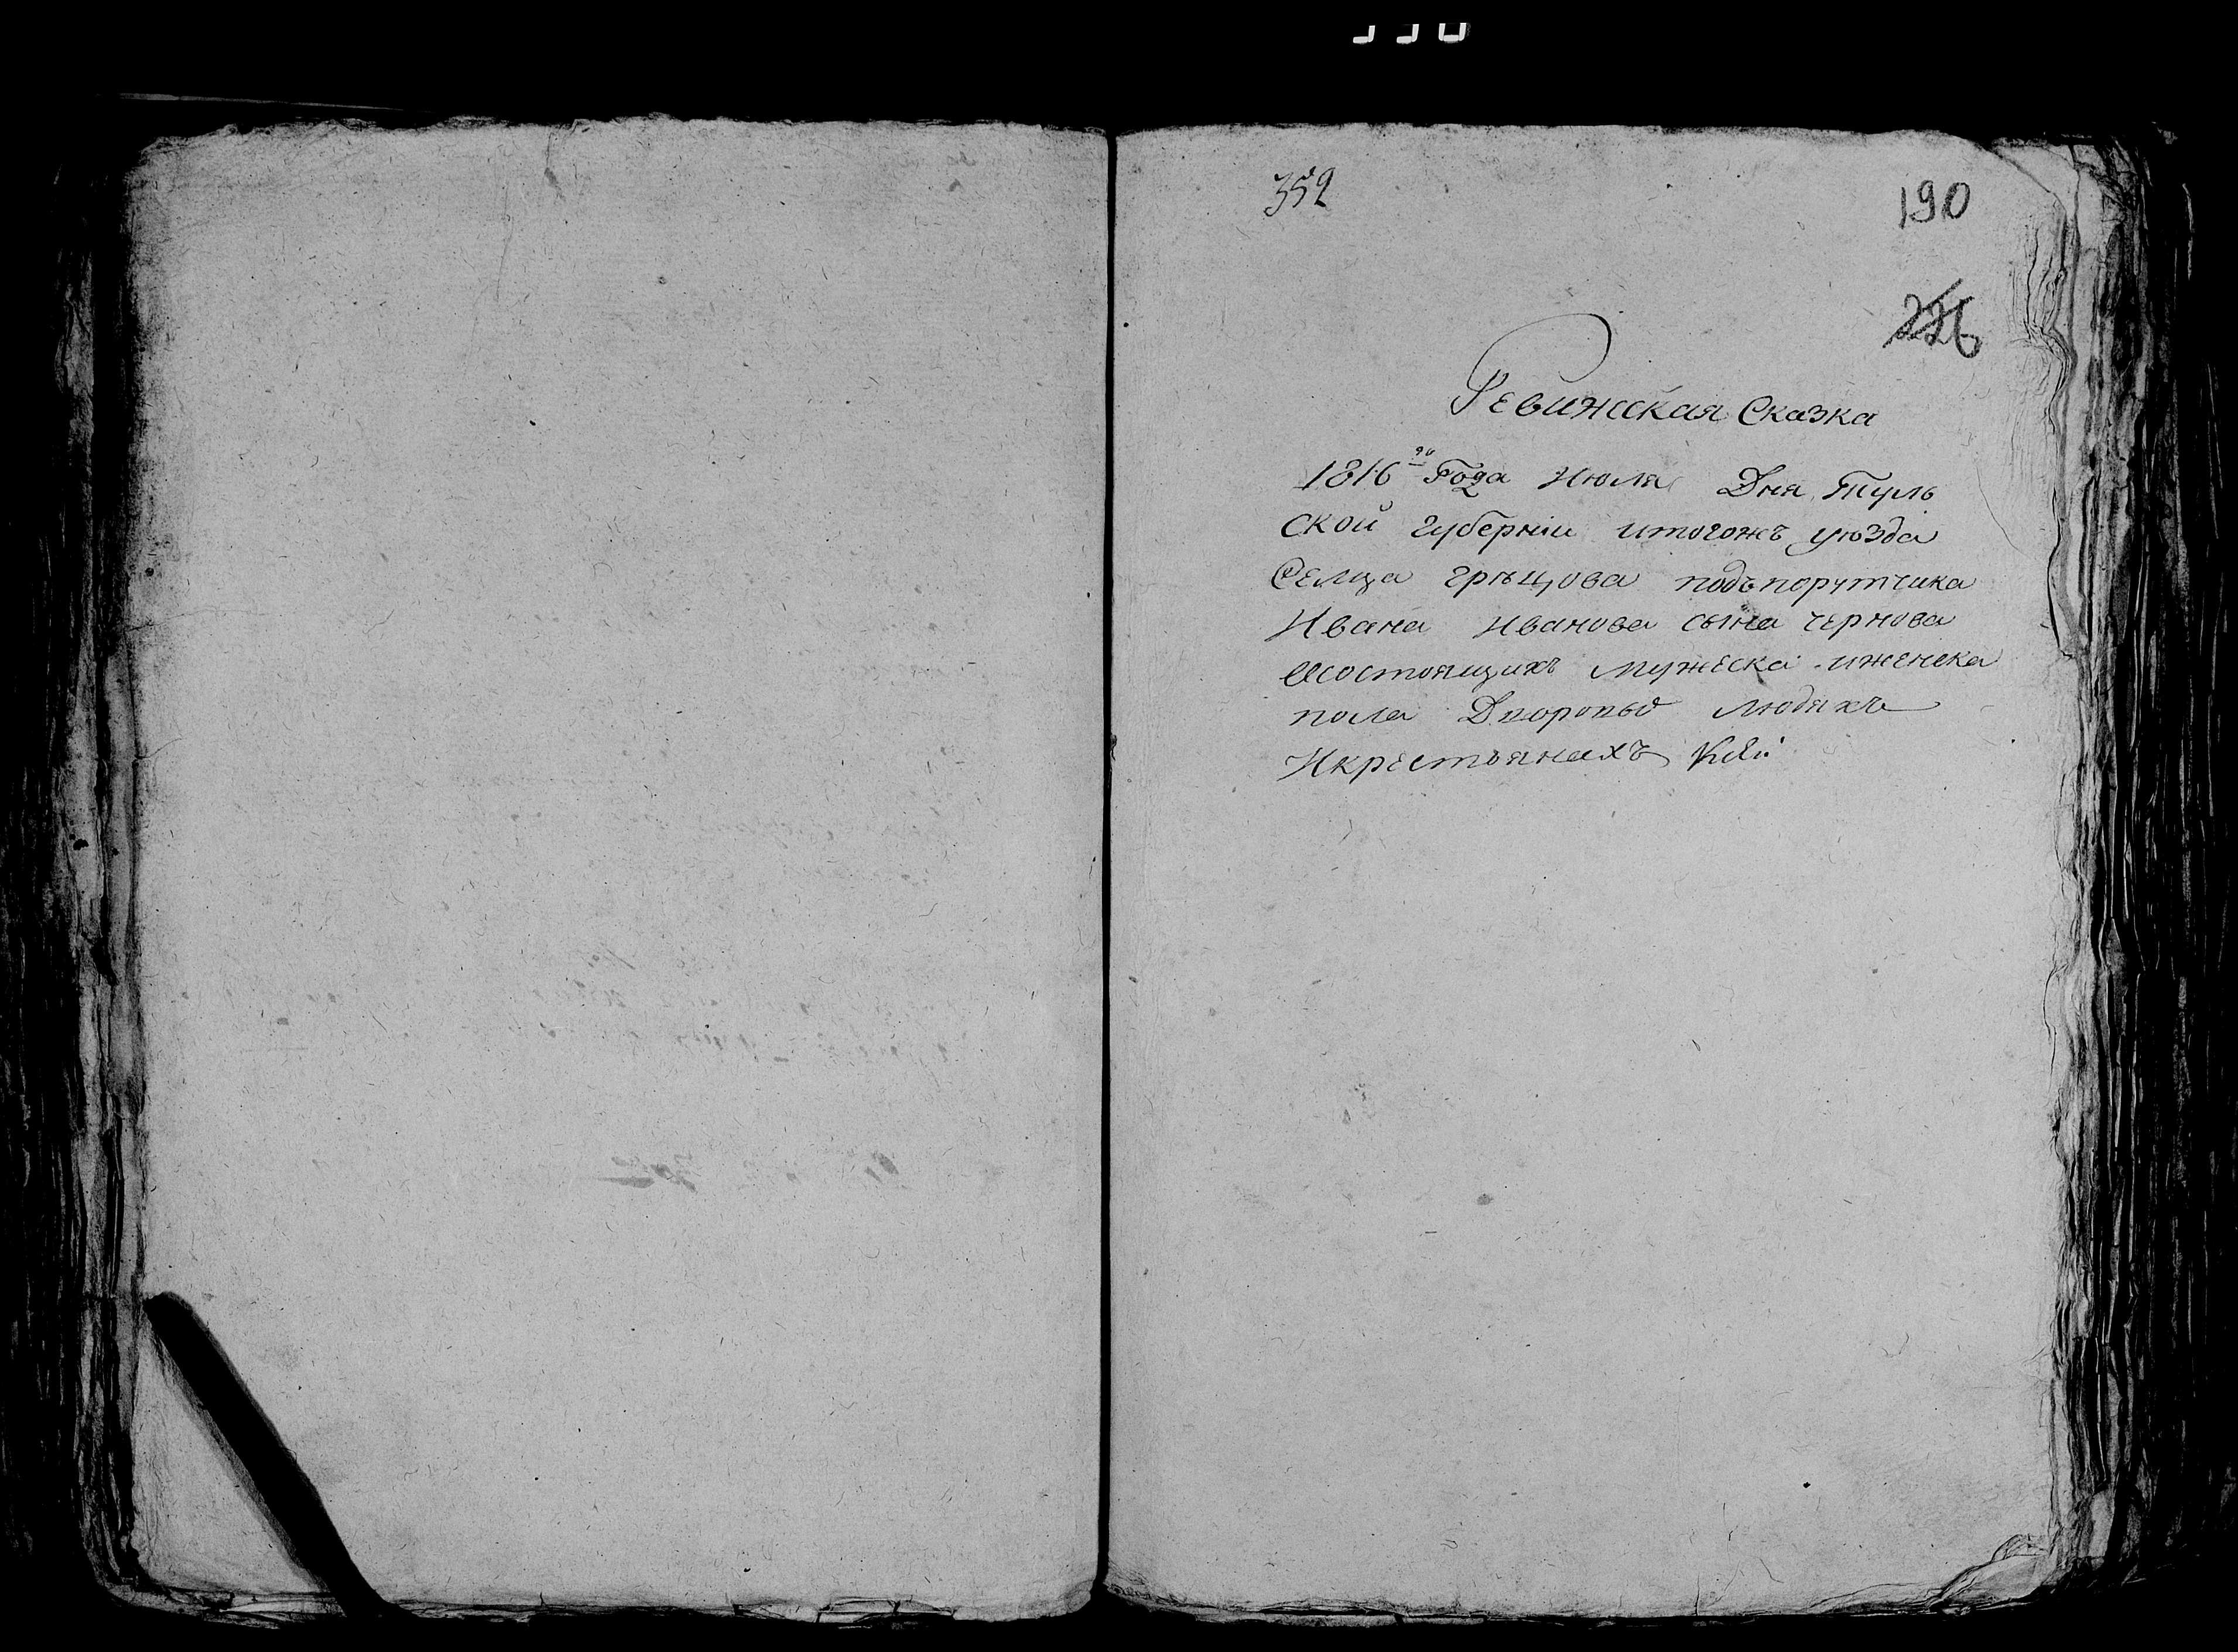 352
190
226
Ревижская Сказка
1816го Года Июля Дня Туль
ской губернии итогожъ уѣзда
Селца грѣцова подъпорутчика
Ивана Иванова сына чернова
Осостоящихъ мужеска иженска
пола Дворовыо людяхъ
Икрестьянахъ